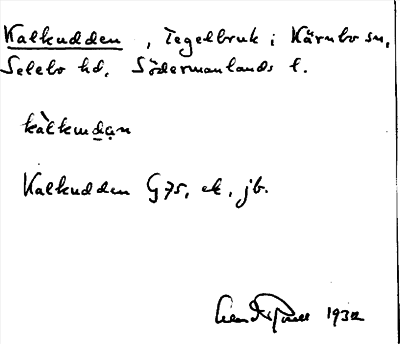 Kalkudden, Tegelbruk i Kärnbo sn,
Selebo hd, Södermanlands l.
kàlkudạn
Kalkudden G 75, ek, jb.
1932